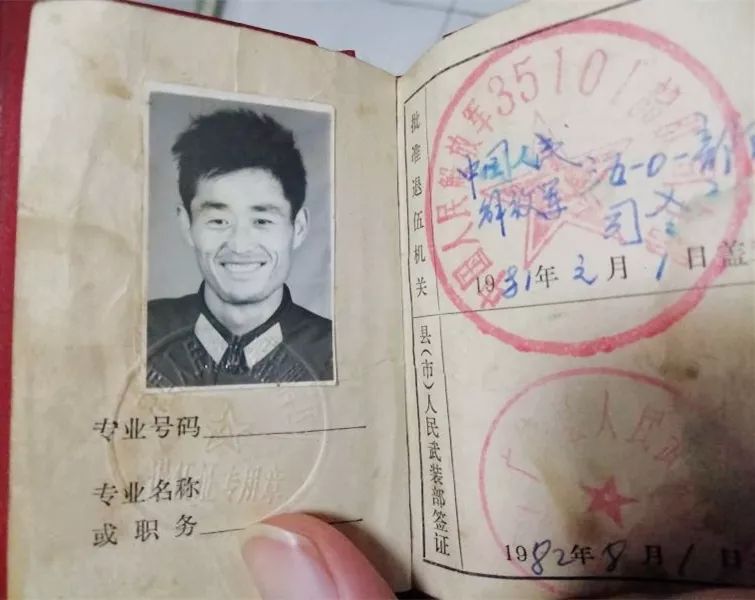 专业号码
专业名称
或职务
专用章
批准退伍机关
中国人民解放军35101部
中国人民
解放军三五一0一部
司令
1981年元月1日盖
县(市)人民武装部签证
人民
1982年8月1日